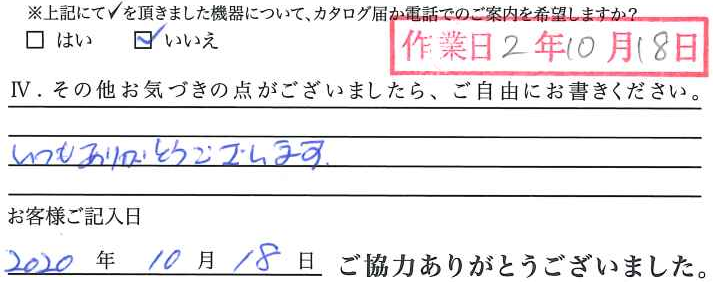 ※上記にて✓を頂きました機器について、カタログ届か電話でのご案内を希望しますか?
□ はい ☑ いいえ
作業日 2 年 10 月 18 日
Ⅳ．その他お気づきの点がございましたら、ご自由にお書きください。
いつもありがとうございます.
お客様ご記入日
2020 年 10 月 18 日 ご協力ありがとうございました。